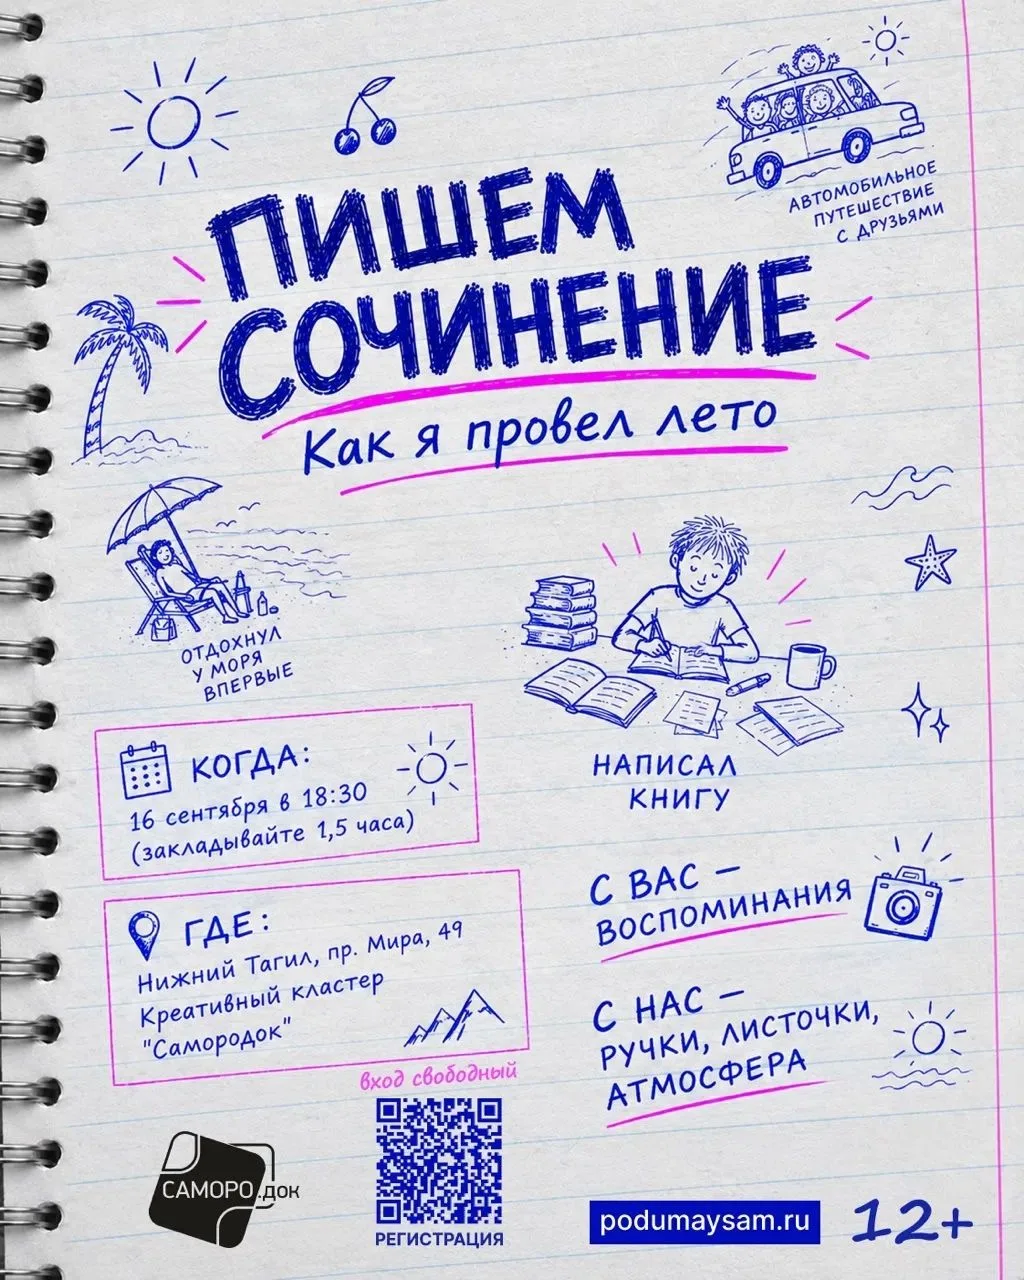 АВТОМОБИЛЬНОЕ
ПУТЕШЕСТВИЕ
С ДРУЗЬЯМИ
ПИШЕМ
СОЧИНЕНИЕ
Как я провел лето
ОТДОХНУЛ
У МОРЯ
ВПЕРВЫЕ
НАПИСАЛ
КНИГУ
КОГДА:
16 сентября в 18:30
(закладывайте 1,5 часа)
ГДЕ:
Нижний Тагил, пр. Мира, 49
Креативный кластер
"Самородок"
С ВАС –
ВОСПОМИНАНИЯ
С НАС –
РУЧКИ, ЛИСТОЧКИ,
АТМОСФЕРА
вход свободный
САМОРО.док
РЕГИСТРАЦИЯ
podumaysam.ru
12+